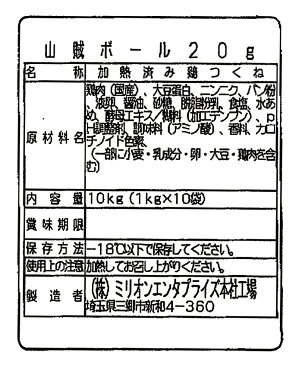 山賊ボール20g
名称 加熱済み鶏つくね
原材料名 鶏肉(国産)、大豆蛋白、ニンニク、パン粉
、液卵、醤油、砂糖、脱脂粉乳、食塩、水あ
め、酵母エキス/糊料(加工デンプン)、p
H調整剤、調味料(アミノ酸)、香料、カロ
チノイド色素、
(一部に小麦・乳成分・卵・大豆・鶏肉を含
む)
内容量 10kg(1kg×10袋)
賞味期限
保存方法 -18℃以下で保存してください。
使用上の注意 加熱してお召し上がりください。
製造者 (株)ミリオンエンタプライズ本社工場
埼玉県三郷市新和4-360